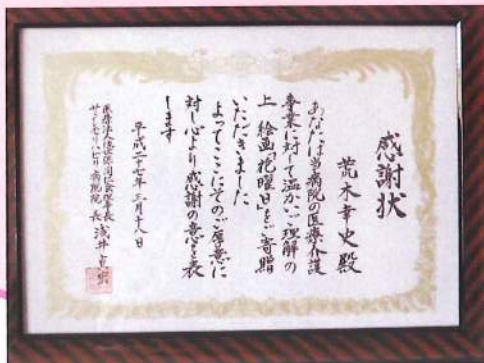 感謝状
荒木幸史殿
あなたは当病院の医療介護
事業に対して温かいご理解の
上 絵画「花曜日」をご寄贈
いただきました
よってここにそのご厚意に
対し心より感謝の意を表
します
平成二十七年三月十八日
医療法人 理事長
リハビリ病院院長 浅井